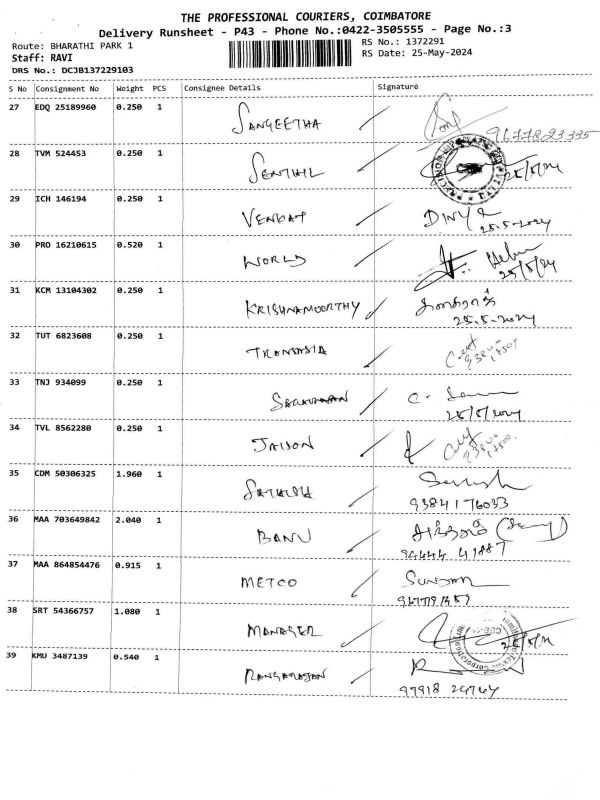 THE PROFESSIONAL COURIERS, COIMBATORE
Delivery Runsheet - P43 - Phone No.:0422-3505555 - Page No.:3
Route: BHARATHI PARK 1
RS No.: 1372291
Staff: RAVI
RS Date: 25-May-2024
DRS No.: DCJB137229103
S No Consignment No Weight PCS Consignee Details Signature
27 EDQ 25189960 0.250 1 SANGEETHA
9677823335
28 TVM 524453 0.250 1 SENTHIL
25/5/24
29 ICH 146194 0.250 1 VENKAT DIVYA
25.5-2024
30 PRO 16210615 0.520 1 WORLD
25/5/24
31 KCM 13104302 0.250 1 KRISHNAMOORTHY
25.5-2024
32 TUT 6823608 0.250 1
33 TNJ 934099 0.250 1
25/5/2024
34 TVL 8562280 0.250 1 JAISON
35 CDM 50306325 1.960 1 SATHISH
9384176033
36 MAA 703649842 2.040 1 BANU
94444 41887
37 MAA 864854476 0.915 1 METCO
38 SRT 54366757 1.080 1 MANAGER
39 KMU 3487139 0.540 1 RANGARAJAN
97918 24764